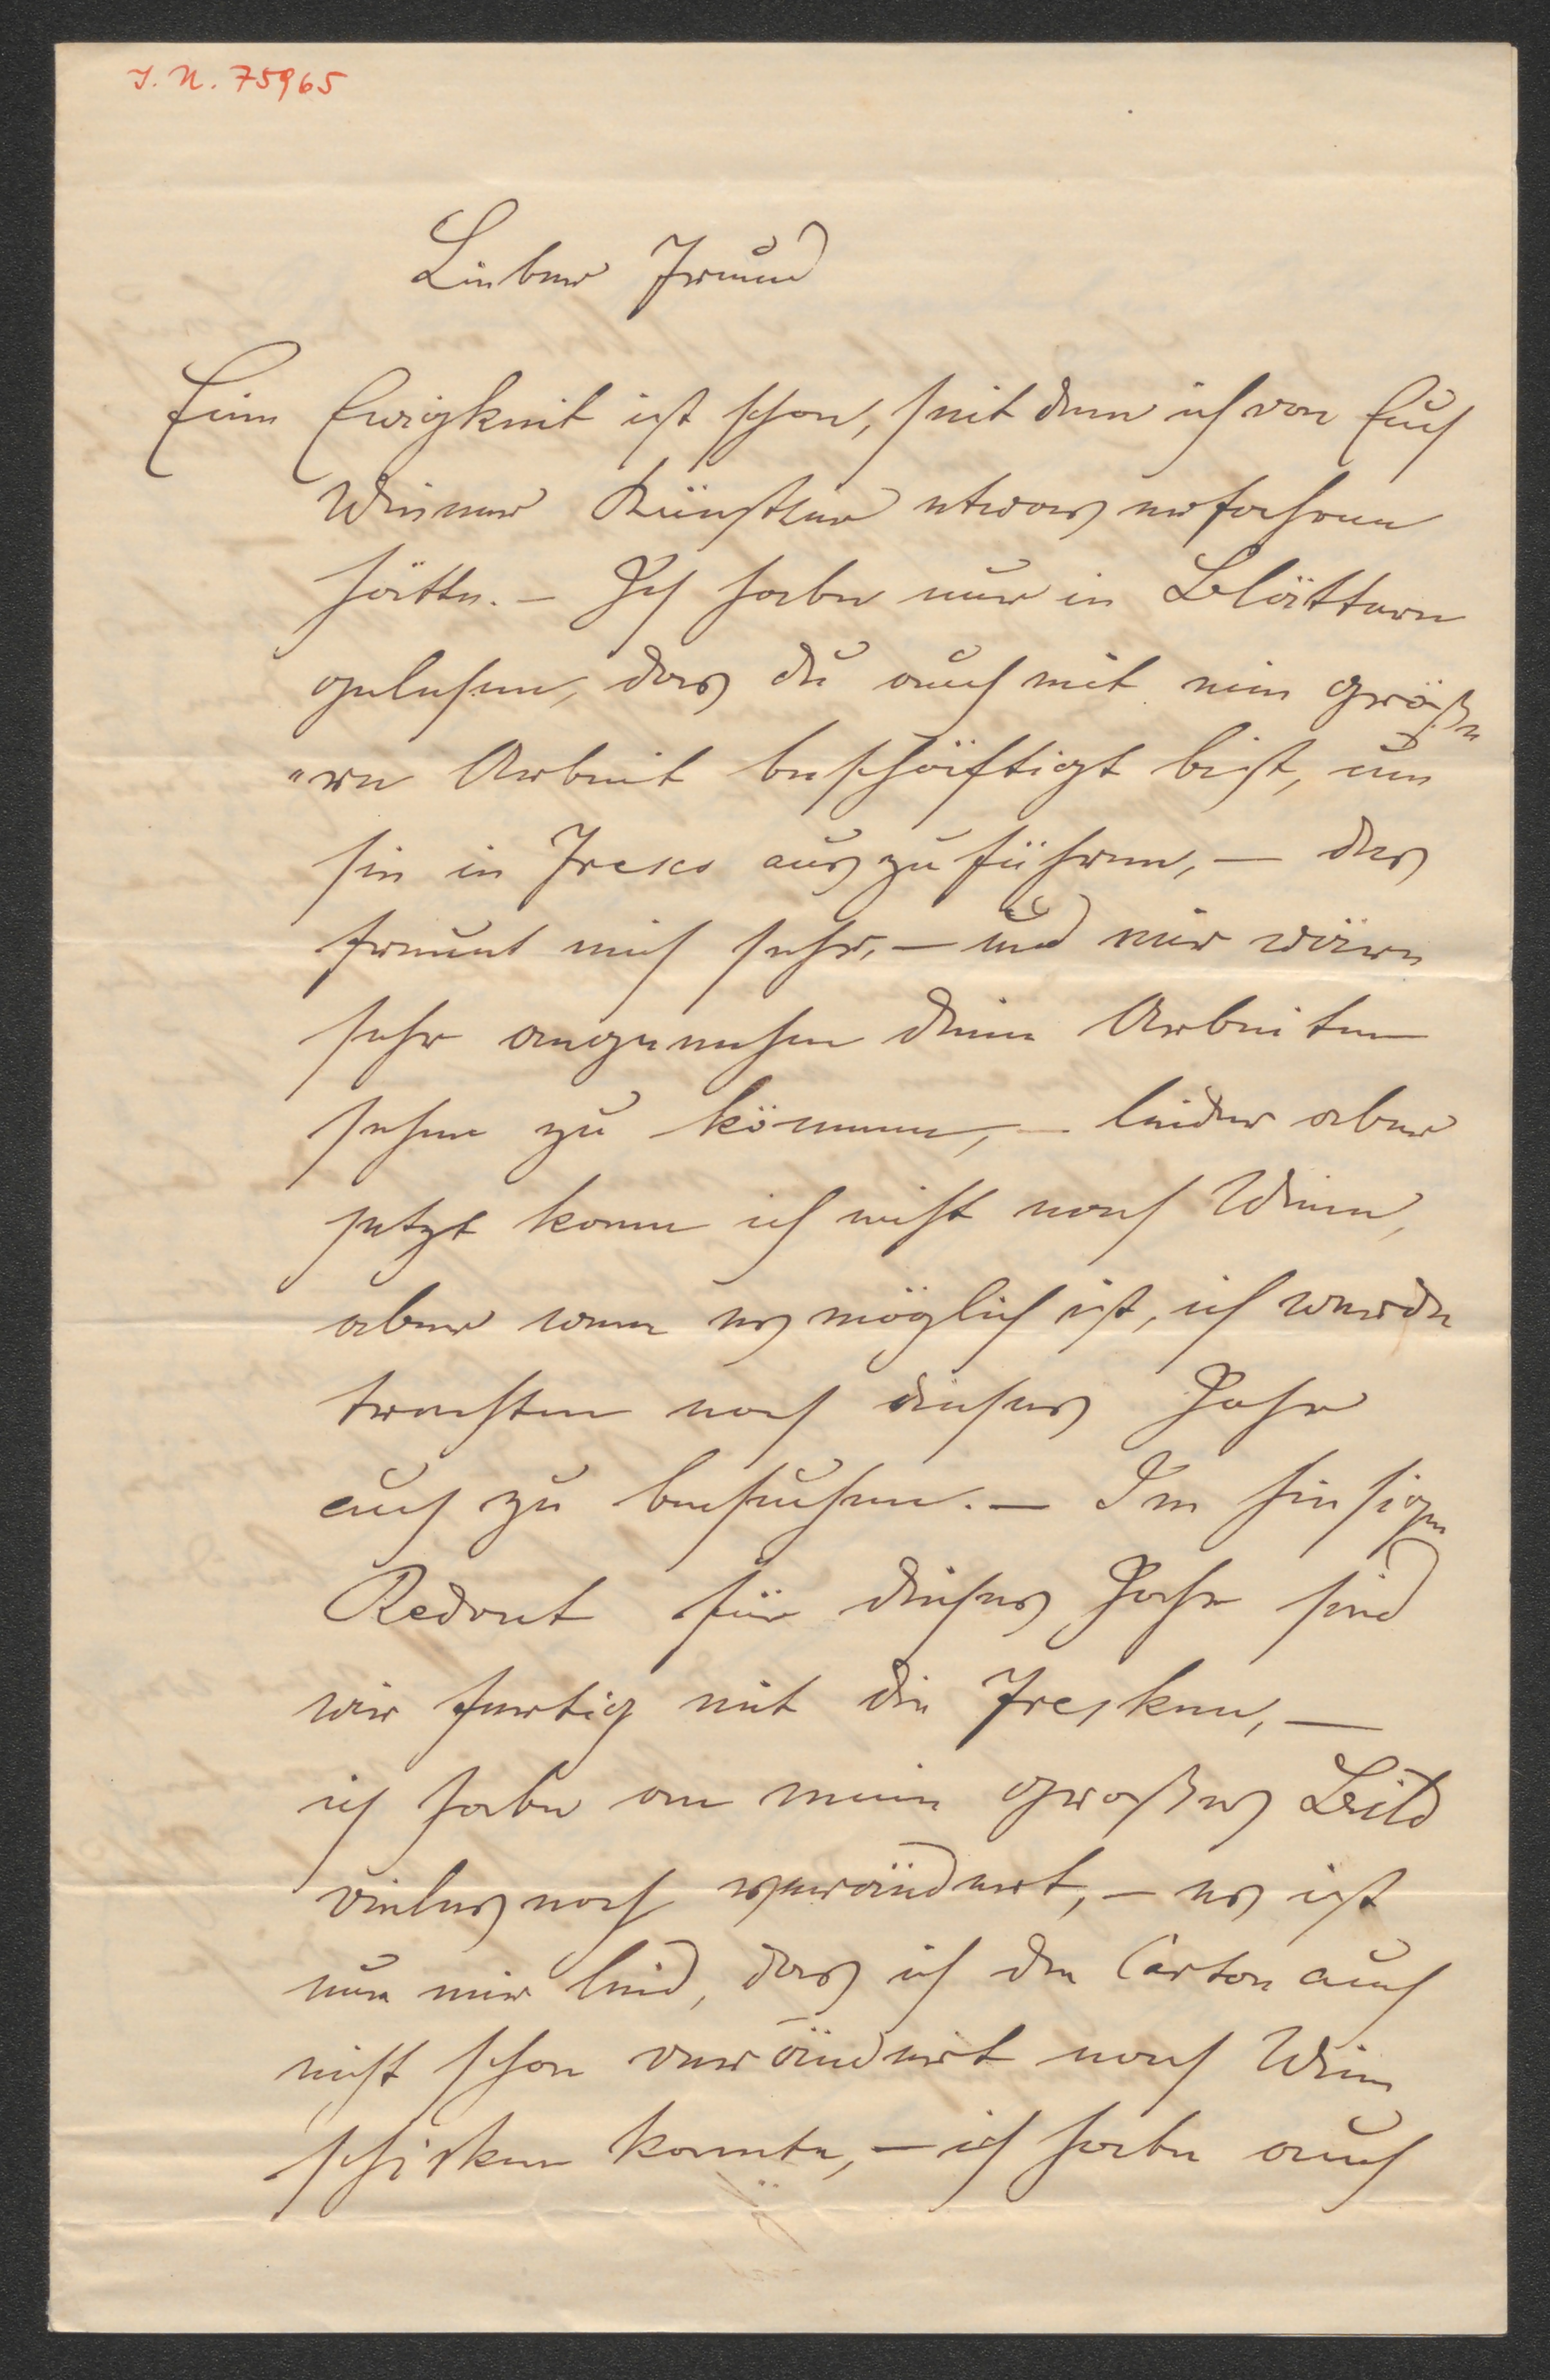 J. N. 75965
Lieber Freund
Eine Ewigkeit ist schon, seit dem ich von Euch
Wiener Künstler etwas erfahren
hätte. – Ich habe nur in Blättern
gelesen, das du auch mit eine größe
"re Arbeit beschäftigt bist, um
sie in Fresco auszuführen, – das
freuet mich sehr, – und mir wäre
sehr angenehm deine Arbeiten
sehen zu können, – leider aber
jetzt komm ich nicht nach Wien,
aber wenn es möglich ist, ich werde
trachten noch dieses Jahr
euch zu besuchen. – Im hiesigen
Redout für dieses Jahr sind
wir fertig mit die Fresken, –
ich habe an mein großes Bild
vieles noch verändert, – es ist
nun mir leid, das ich den Carton auch
nicht schon verändert nach Wien
schicken konnte, – ich habe auch